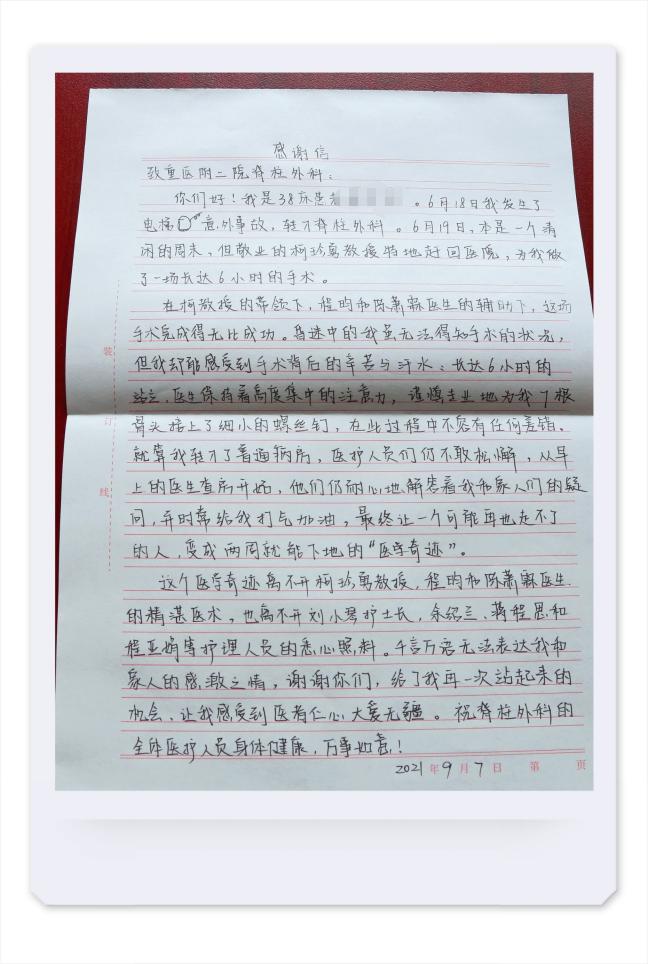 感谢信
致重医附二院脊柱外科：
你们好！我是38床患者。6月18日我发生了
电梯意外事故，转才脊柱外科。6月19日，本是一个清
闲的周末，但敬业的柯珍勇教授特地赶回医院，为我做
了一场长达6小时的手术。
在柯教授的带领下，程昀和陈萧霖医生的辅助下，这场
手术完成得无比成功。昏迷中的我虽无法得知手术的状况，
但我却能感受到手术背后的辛苦与汗水：长达6小时的
站立，医生保持着高度集中的注意力，谨慎专业地为我7根
骨头接上了细小的螺丝钉，在此过程中不容有任何差错。
就算我转才了普通病房，医护人员们仍不敢松懈，从早
上的医生查房开始，他们仍耐心地解答着我和家人们的疑
问，并时常给我打气加油，最终让一个可能再也走不了
的人，变成两周就能下地的“医学奇迹”。
这个医学奇迹离不开柯珍勇教授，程昀和陈萧霖医生
的精湛医术，也离不开刘小琴护士长，余绍兰、蒋程思和
程亚娟等护理人员的悉心照料。千言万语无法表达我和
家人的感激之情，谢谢你们，给了我再一次站起来的
机会，让我感受到医者仁心大爱无疆。祝脊柱外科的
全体医护人员身体健康，万事如意！
2021年9月7日 第 页
装
订
线